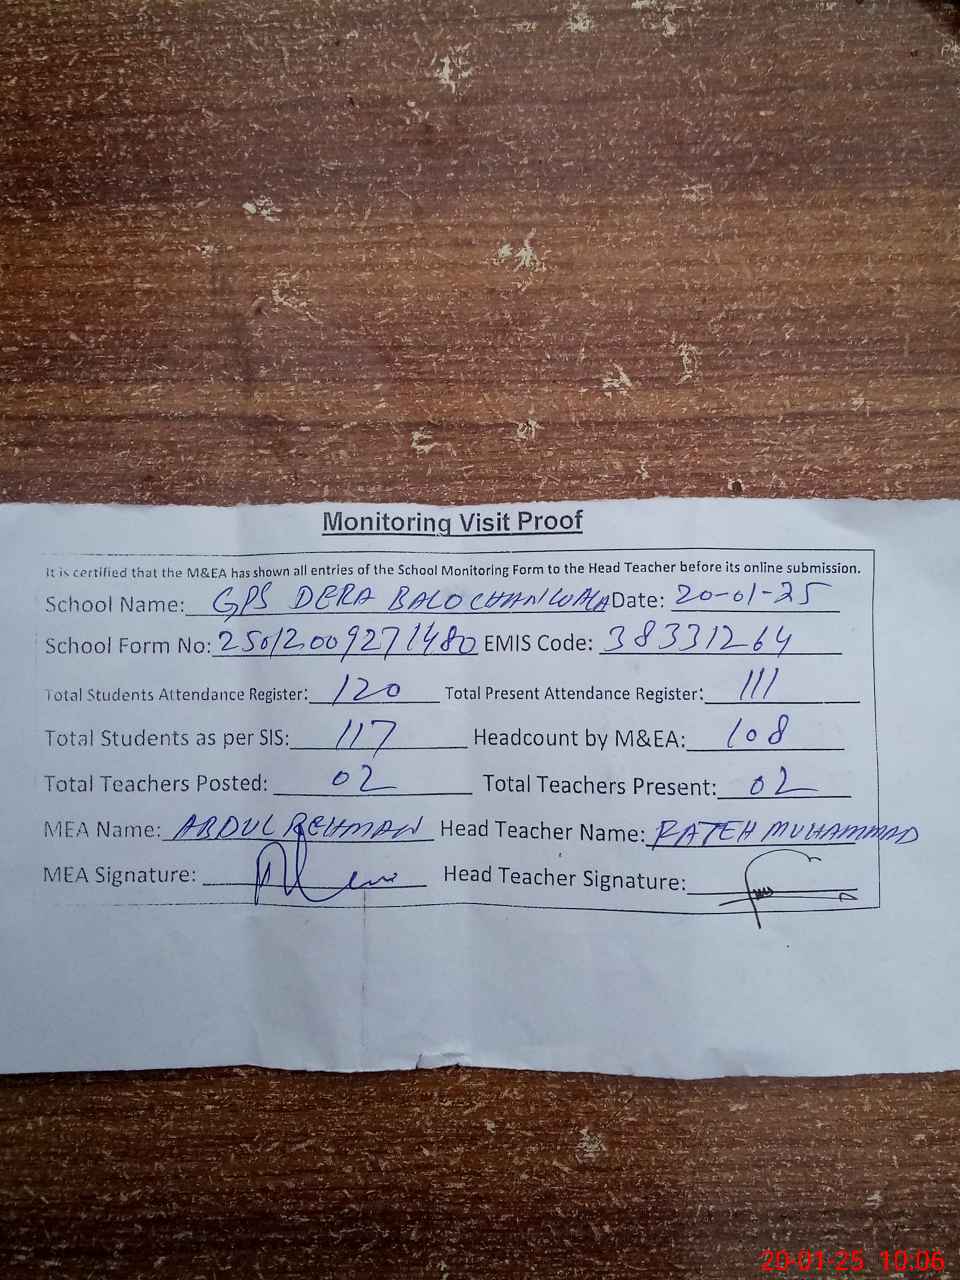 Monitoring Visit Proof
It is certified that the M&EA has shown all entries of the School Monitoring Form to the Head Teacher before its online submission.
School Name: GPS DERA BALOCHANWALA Date: 20-01-25
School Form No: 25012009271480 EMIS Code: 38331264
Total Students Attendance Register: 120 Total Present Attendance Register: 111
Total Students as per SIS: 117 Headcount by M&EA: 108
Total Teachers Posted: 02 Total Teachers Present: 02
MEA Name: ABDUL REHMAN Head Teacher Name: FATEH MUHAMMAD
MEA Signature: Head Teacher Signature:
20-01-25 10:06